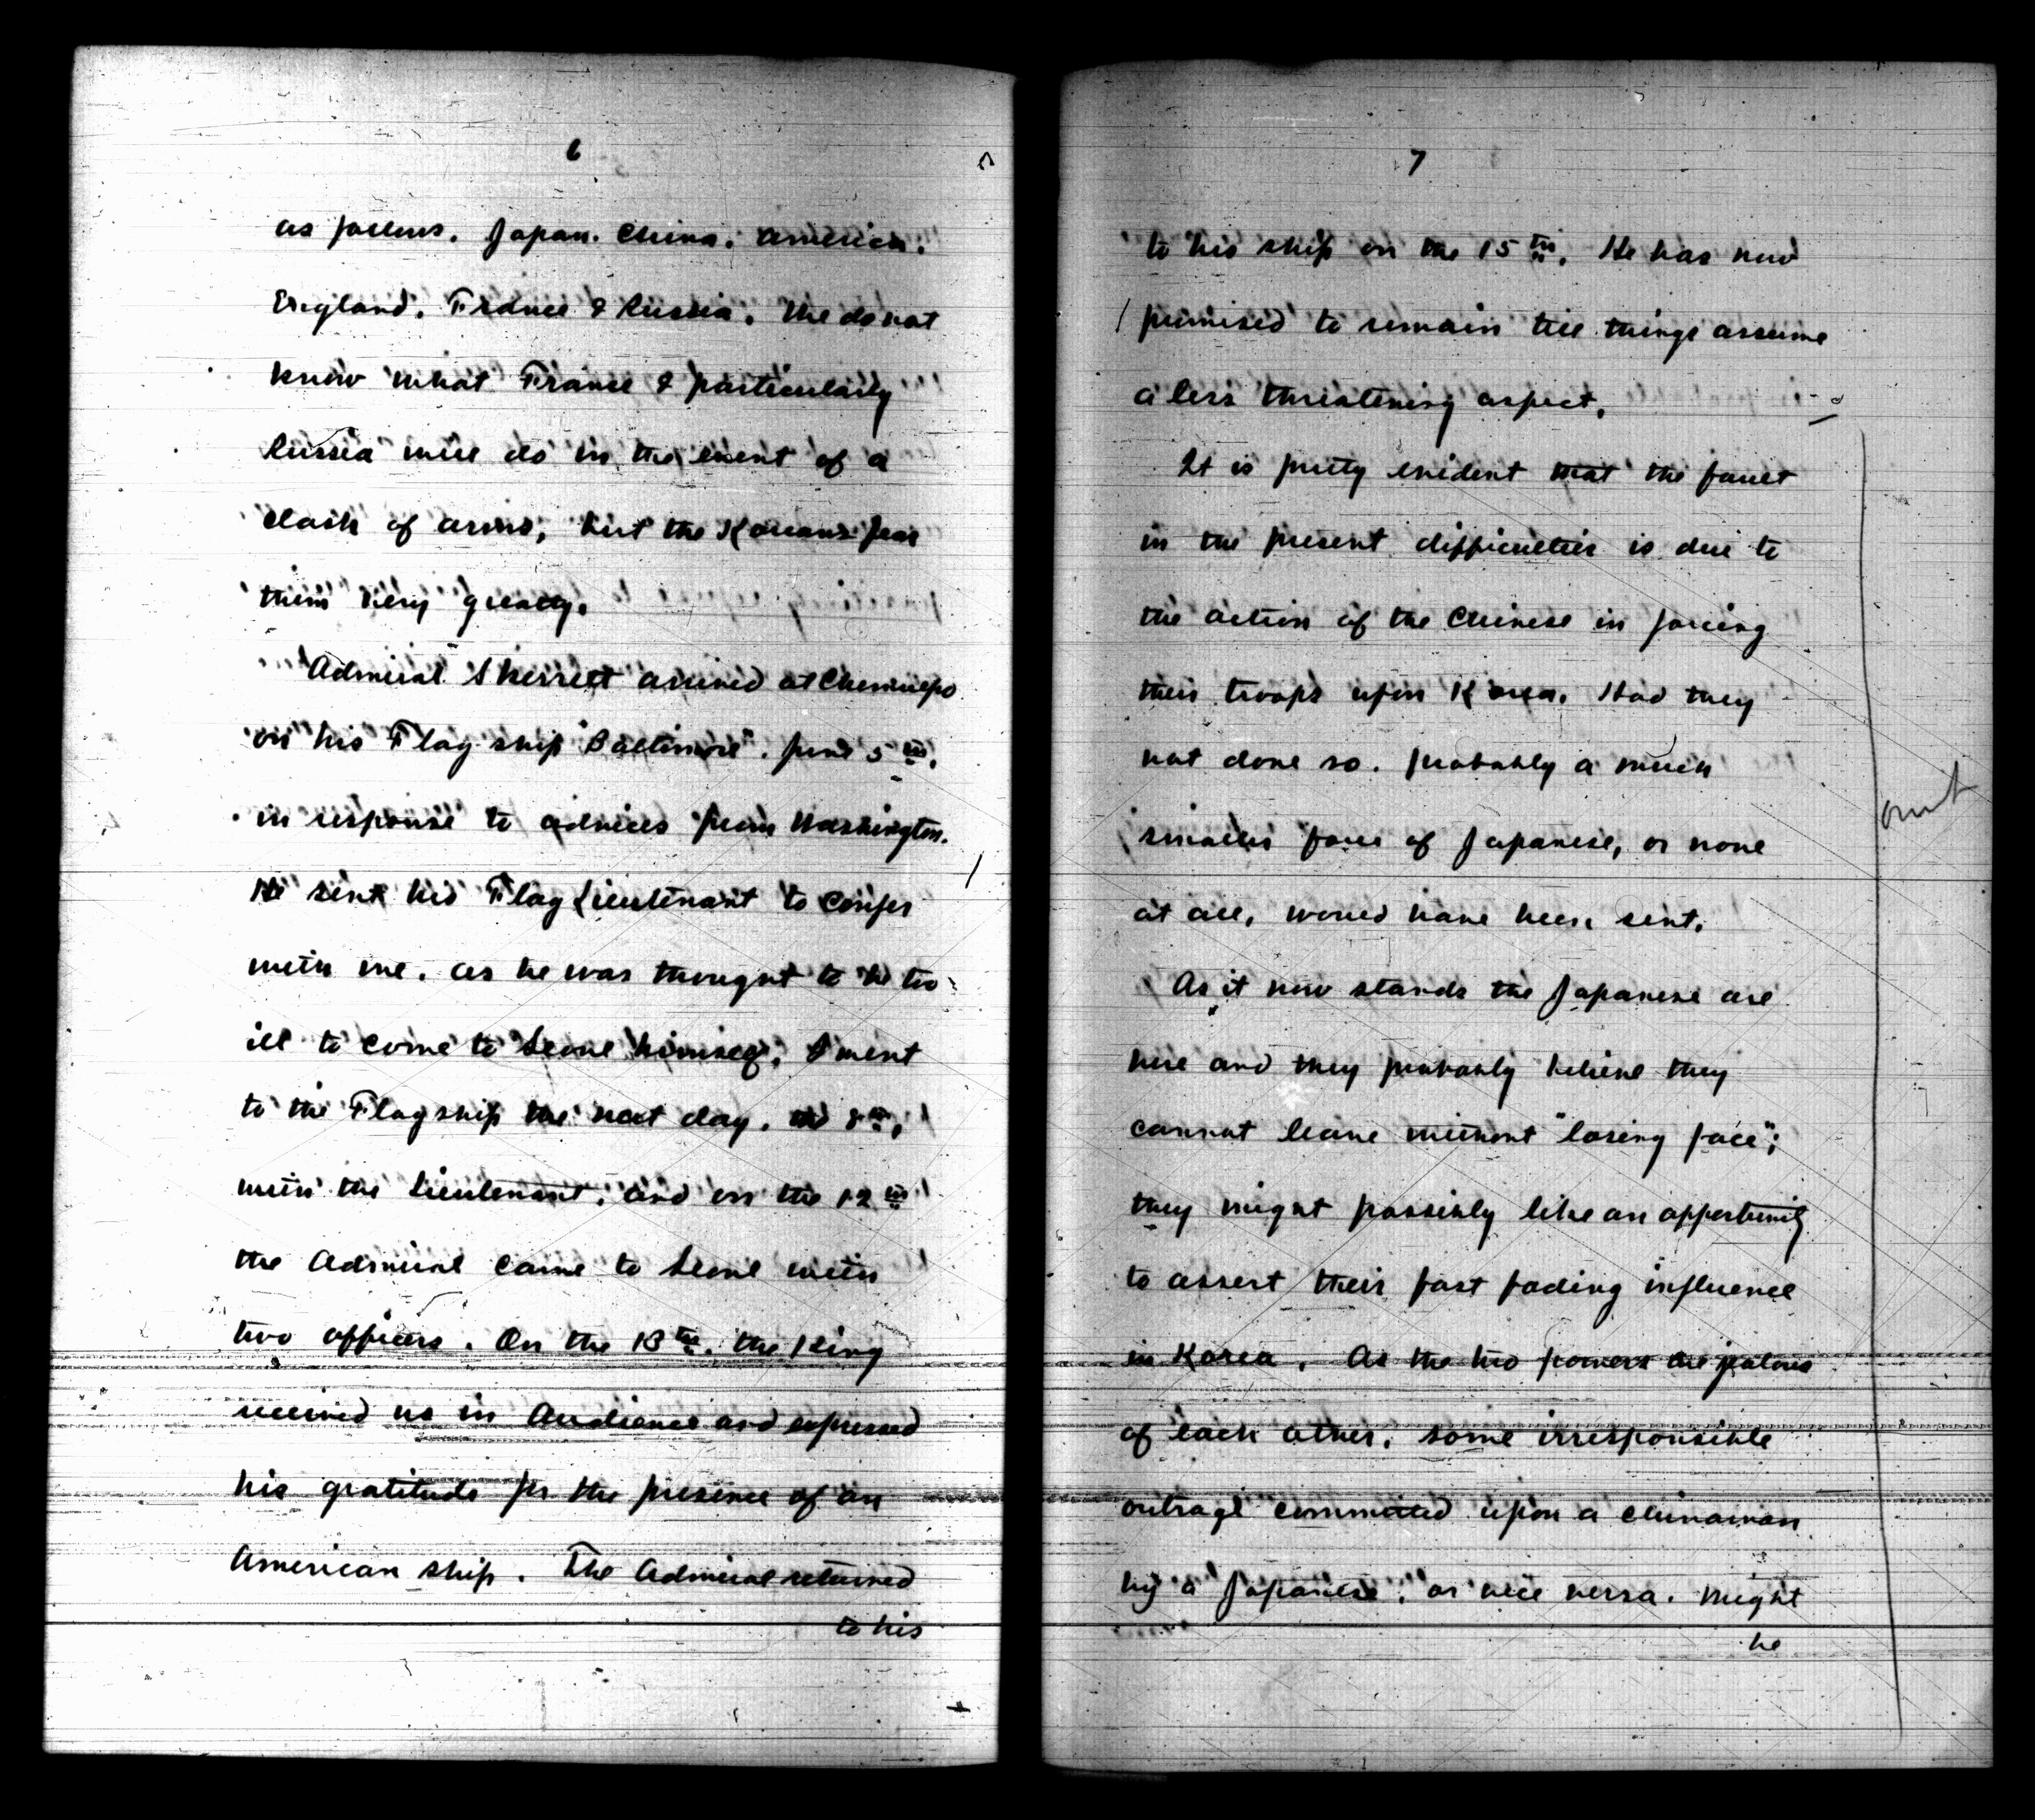 6
as follows. Japan. China. America.
England. France & Russia. We do not
know what France & particularly
Russia will do in the event of a
clash of arms, but the Koreans fear
them very greatly.
Admiral Skerrett arrived at Chemulpo
on his Flag ship "Baltimore". June 5th.
in response to advices from Washington.
He sent his Flag Lieutenant to confer
with me. as he was thought to be too
ill to come to Seoul himself. I went
to the Flagship the next day. 8th,
with the Lieutenant, and on the 12th
the Admiral came to Seoul with
two officers. On the 13th. the King
received us in Audience and expressed
his gratitude for the presence of an
American ship. The Admiral returned
to his
7
to his ship on the 15th. He has now
promised to remain till things assume
a less threatening aspect.
It is pretty evident that the fault
in the present difficulties is due to
the action of the Chinese in forcing
their troops upon Korea. Had they
not done so. probably a much
smaller force of Japanese, or none
at all, would have been sent.
As it now stands the Japanese are
here and they probably believe they
cannot leave without "losing face";
they might possibly like an opportunity
to assert their fast fading influence
in Korea. As the two powers are jealous
of each other, some irresponsible
outrage committed upon a Chinaman
by a Japanese, or vice versa. might
be
omit